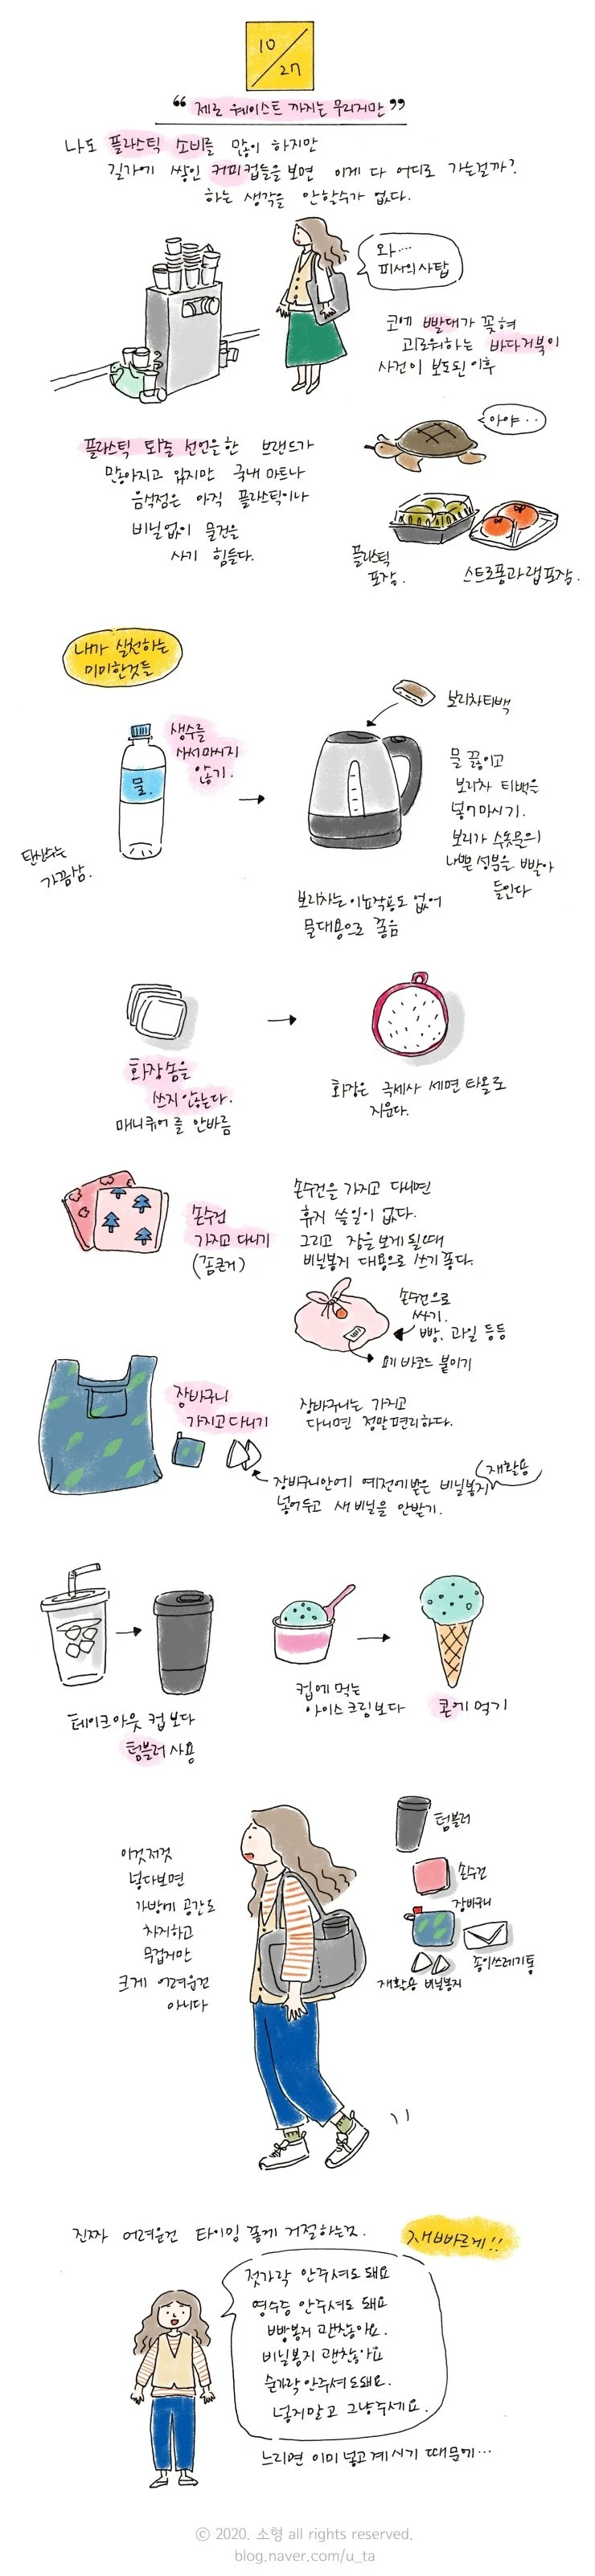 10
27
"제로 웨이스트 까지는 무리지만"
나도 플라스틱 소비를 많이 하지만
길가에 쌓인 커피컵들을 보면 이게 다 어디로 가는걸까?
하는 생각을 안할수가 없다.
와....
피사의 사탑
코에 빨대가 꽂혀
괴로워하는 바다거북이
사건이 보도된 이후
아야..
플라스틱 퇴출 선언을한 브랜드가
많아지고 있지만 국내 마트나
음식점은 아직 플라스틱이나
비닐없이 물건을
사기 힘들다.
플라스틱
포장.
스트로폼과 랩 포장.
내가 실천하는
미미한것들
생수를
사서마시지
않기.
물.
탄산수는
가끔삼.
보리차티백
물 끓이고
보리차 티백을
넣어마시기.
보리가 수돗물의
나쁜 성분을 빨아
들인다
보리차는 이뇨작용도 없어
물대용으로 좋음
화장솜을
쓰지 않는다.
매니큐어를 안바름
화장은 극세사 세면 타올로
지운다.
손수건
가지고 다니기
(좀큰거)
손수건을 가지고 다니면
휴지 쓸일이 없다.
그리고 장을 보게 될때
비닐봉지 대용으로 쓰기 좋다.
손수건으로
싸기.
빵, 과일 등등
요기 바코드 붙이기
장바구니
가지고 다니기
장바구니는 가지고
다니면 정말편리하다.
장바구니안에 예전에받은 비닐봉지
재활용
넣어두고 새 비닐을 안받기.
테이크아웃 컵 보다
텀블러 사용
컵에 먹는
아이스크림보다
콘에 먹기
이것저것
넣다보면
가방에 공간도
차지하고
무겁지만
크게 어려운건
아니다
텀블러
손수건
장바구니
종이쓰레기통
재활용 비닐봉지
진짜 어려운건 타이밍 좋게 거절하는것.
재빠르게!!
젓가락 안주셔도 돼요
영수증 안주셔도 돼요
빵봉지 괜찮아요.
비닐봉지 괜찮아요
숟가락안주셔도돼요.
넣지말고 그냥주세요.
느리면 이미 넣고계시기 때문에...
ⓒ 2020. 소형 all rights reserved.
blog.naver.com/u_ta